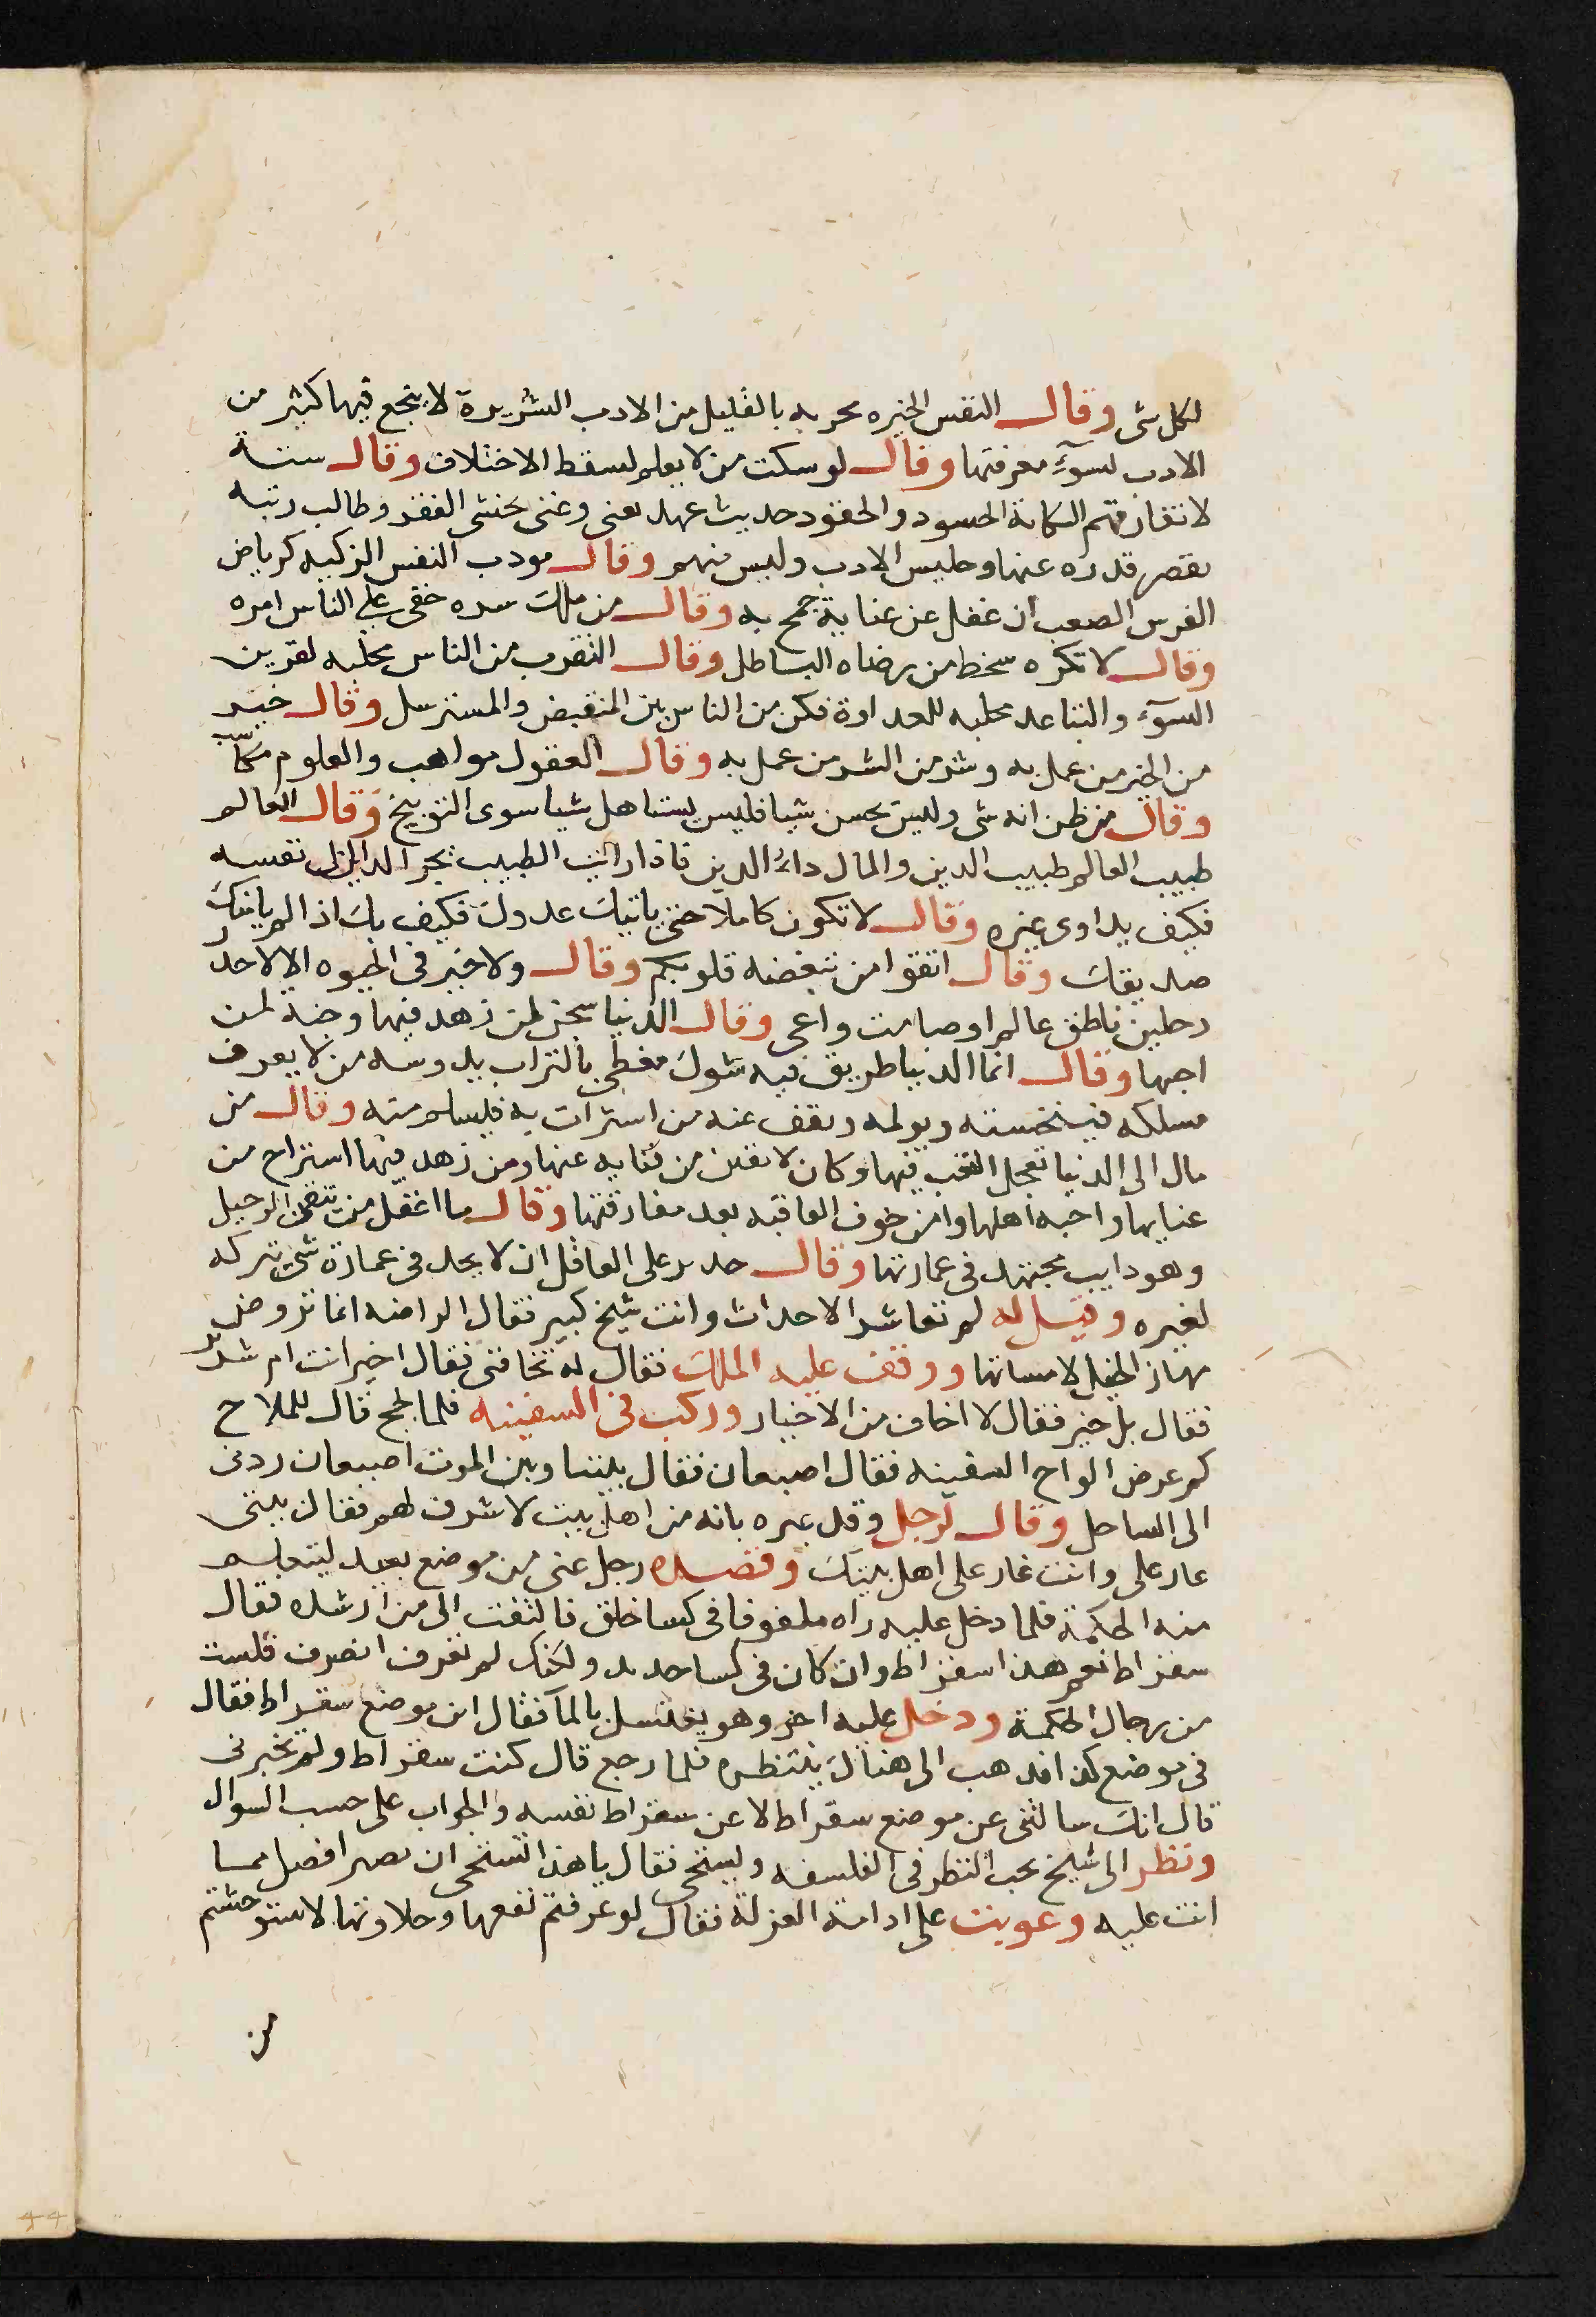 لكل شى وقال النفس الخيره مجربه بالقليل من الادب الشريرة لا ينجع فيها كثير من
الادب لسوء معرفتها وقال لو سكت من لا يعلم لسقط الاختلاف وقال ستة
لا تفارقهم الكابة الحسود والحقود حديث عهد بغنى وغنى يخشى الفقر وطالب رتبه
يقصر قدره عنها وجليس الادب وليس منهم وقال مودب النفس الزكيه كرياض
الفرس الصعب ان غفل عن عنايه جمح به وقال من ملك سره خفى على الناس امره
وقال لا تكره سخط من رضاه الباطل وقال التقرب من الناس مجلبه لقرين
السوء والتباعد مجلبه للعداوة فكن من الناس بين المنقبض والمسترسل وقال خير
من الخير من عمل به وشر من الشر من عمل به وقال العقول مواهب والعلوم مكاسب
وقال من ظن انه شى وليس يحسن شيا فليس يستاهل شيا سوى التوبيخ وقال العالم
طبيب العالم طبيب الدين والمال داء الدين فاذا رايت الطبيب يجر الداء الى نفسه
فكيف يداوى غيره وقال لا تكون كاملا حتى ياتيك عدوك فكيف بك اذا لم ياتيك
صديقك وقال اتقوا من تبغضه قلوبكم وقال ولا خير فى الحيوه الا لاحد
رجلين ناطق عالم او صامت واعى وقال الدنيا سجن لمن زهد فيها وجنة لمن
احبها وقال انما الدنيا طريق فيه شوك مغطى بالتراب يدوسه من لا يعرف
مسلكه فينخسه ويولمه ويقف عنه من استراب به فيسلم منه وقال من
مال الى الدنيا تعجل التعب فيها وكان لا يقين من فنايه عنها ومن زهد فيها استراح من
عنايها واحبه اهلها وامن خوف العاقبه بعد مفارقتها وقال ما اغفل من تيقن الرحيل
وهو دايب مجتهد فى عمارتها وقال جدير على العاقل ان لا يجد فى عمارة شى يتركه
لغيره وقيل له لم تعاشر الاحداث وانت شيخ كبير فقال الراضه انما تروض
مهار الخيل لا مسانها ووقف عليه الملك فقال له تخافنى فقال اخير انت ام شرير
فقال بل خير فقال لا اخاف من الاخيار وركب فى السفينه فلما لجج قال للملاح
كم عرض الواح السفينه فقال اصبعان فقال بيننا وبين الموت اصبعان ردنى
الى الساحل وقال لرجل وقد عيره بانه من اهل بيت لا شرف لهم فقال بيتى
عار على وانت عار على اهل بيتك وقصده رجل غنى من موضع بعيد ليتعلم
منه الحكمة فلما دخل عليه راه ملفوفا فى كسا خلق فالتفت الى من ارشده فقال
سقراط نعم هذا سقراط وان كان فى كسا جديد ولكنك لم تعرف انصرف فلست
من رجال الحكمة ودخل عليه اخر وهو يغتسل بالماء فقال اين موضع سقراط فقال
فى موضع كذا فذهب الى هناك ينتظره فلما رجع قال كنت سقراط ولم تخبرنى
قال انك سالتنى عن موضع سقراط لا عن سقراط نفسه والجواب على حسب السوال
ونظر الى شيخ يحب النظر فى الفلسفه ويستحى فقال يا هذا اتستحى ان تصير افضل مما
انت عليه وعوبت على ادامة العزلة فقال لو عرفتم نفعها وحلاوتها لاستوحشتم
من